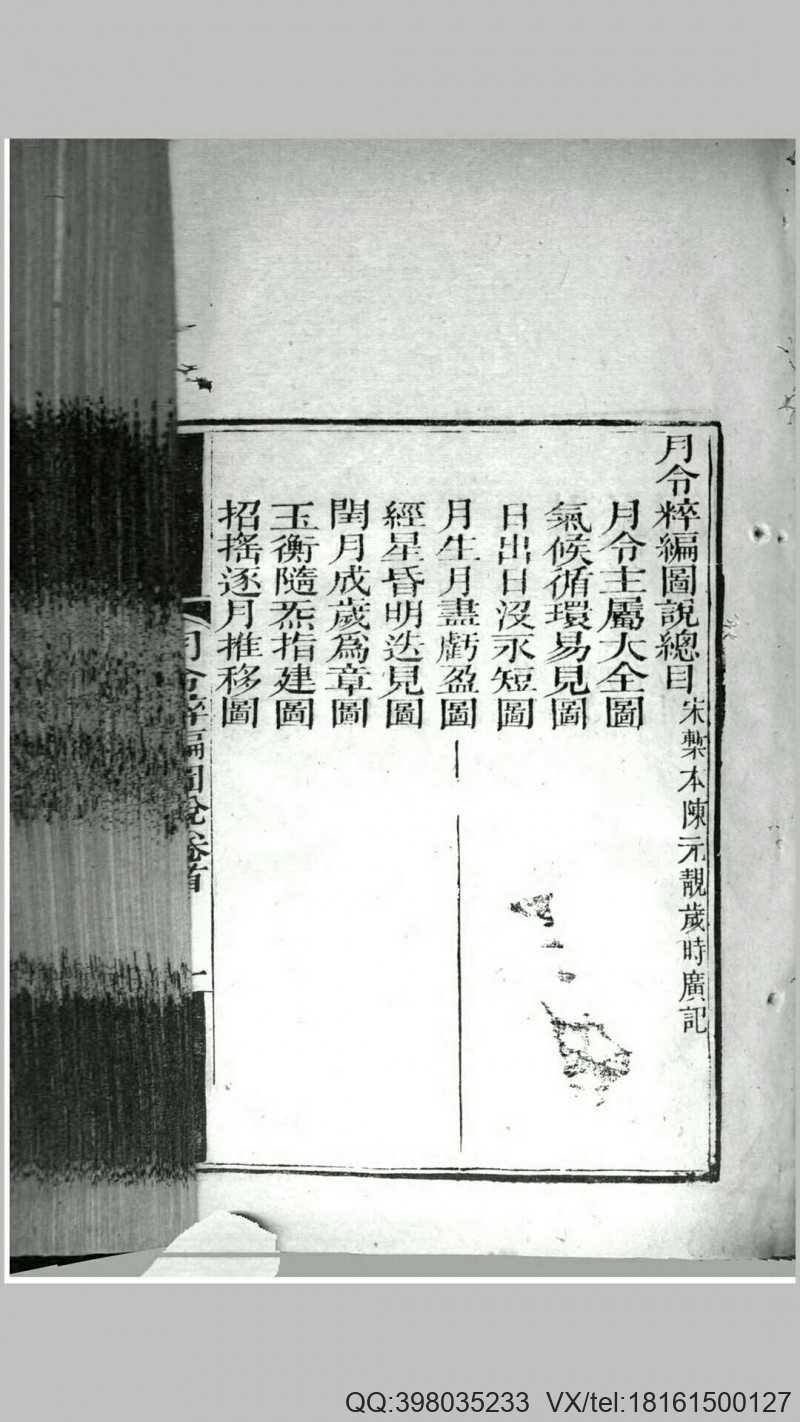 月令粹編圖說總目 宋槧本陳元靚歲時廣記
月令主屬大全圖
氣候循環易見圖
日出日沒永短圖
月生月盡虧盈圖
經星昏明迭見圖
閏月成歲為章圖
玉衡隨炁指建圖
招搖逐月推移圖
月令粹編圖說卷首
一
QQ:398035233 VX/tel:18161500127